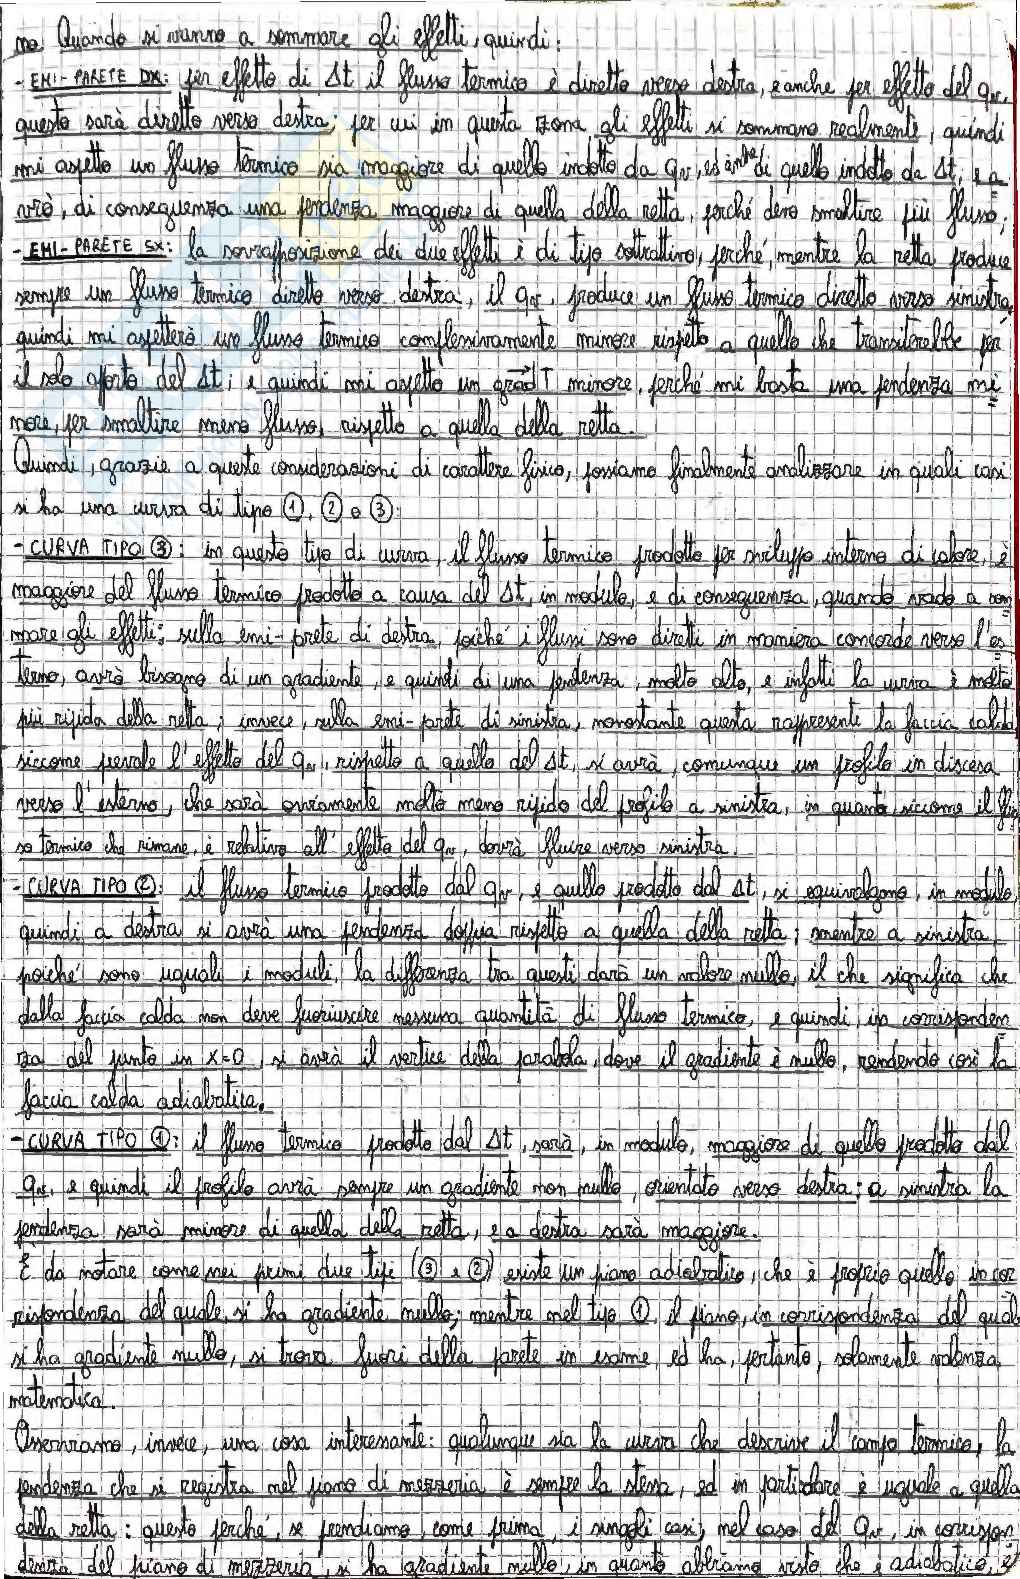 no. Quando si vanno a sommare gli effetti, quindi:
- EMI-PARETE DX: per effetto di Δt il flusso termico è diretto verso destra, e anche per effetto del qv,
questo sarà diretto verso destra; per cui in questa zona gli effetti si sommano realmente, quindi
mi aspetto un flusso termico sia maggiore di quello indotto da qv, es anche di quello indotto da Δt, e a
vrò, di conseguenza una pendenza maggiore di quella della retta, perché devo smaltire più flusso;
- EMI-PARETE SX: la sovrapposizione dei due effetti è di tipo sottrattivo, perché, mentre la retta produce
sempre un flusso termico diretto verso destra, il qv, produce un flusso termico diretto verso sinistra,
quindi mi aspetterò un flusso termico complessivamente minore rispetto a quello che transiterebbe per
il solo aporto del Δt; e quindi mi aspetto un grad T minore, perché mi basta una pendenza mi
nore, per smaltire meno flusso, rispetto a quella della retta.
Quindi, grazie a queste considerazioni di carattere fisico, possiamo finalmente analizzare in quali casi
si ha una curva di tipo ①, ② o ③:
- CURVA TIPO ③: in questo tipo di curva, il flusso termico prodotto per sviluppo interno di calore, è
maggiore del flusso termico prodotto a causa del Δt, in modulo, e di conseguenza, quando vado a som
mare gli effetti; sulla emi-prete di destra, poiché i flussi sono diretti in maniera concorde verso l'es
terno, avrò bisogno di un gradiente, e quindi di una pendenza, molto alto, e infatti la curva è molto
più ripida della retta; invece, sulla emi-parete di sinistra, nonostante questa rappresente la faccia calda,
siccome prevale l'effetto del qv, rispetto a quello del Δt, si avrà, comunque un profilo in discesa
verso l'esterno, che sarà ovviamente molto meno ripido del profilo a sinistra, in quanto, siccome il flus
so termico che rimane, è relativo all'effetto del qv, dovrà fluire verso sinistra.
- CURVA TIPO ②: il flusso termico prodotto dal qv, e quello prodotto dal Δt, si equivalgono, in modulo,
quindi a destra si avrà una pendenza doppia rispetto a quella della retta; mentre a sinistra,
poiché sono uguali i moduli, la differenza tra questi darà un valore nullo, il che significa che
dalla faccia calda non deve fuoriuscire nessuna quantità di flusso termico, e quindi, in corrisponden
za del punto in x=0, si avrà il vertice della parabola, dove il gradiente è nullo, rendendo così la
faccia calda adiabatica.
- CURVA TIPO ①: il flusso termico prodotto dal Δt, sarà, in modulo, maggiore di quello prodotto dal
qv, e quindi il profilo avrà sempre un gradiente non nullo, orientato verso destra: a sinistra la
pendenza sarà minore di quella della retta, e a destra sarà maggiore.
È da notare come nei primi due tipi (③ e ②) esiste un piano adiabatico, che è proprio quello in cor
rispondenza del quale, si ha gradiente nullo; mentre nel tipo ①, il piano, in corrispondenza del quale
si ha gradiente nullo, si trova fuori della parete in esame, ed ha, pertanto, solamente valenza
matematica.
Osserviamo, invece, una cosa interessante: qualunque sia la curva che descrive il campo termico, la
pendenza che si registra nel piano di mezzeria è sempre la stessa, ed in particolare è uguale a quella
della retta: questo perché, se prendiamo, come prima, i singoli casi; nel caso del qv, in corrispon
denza del piano di mezzeria, si ha gradiente nullo, in quanto abbiamo visto che è adiabatico, e